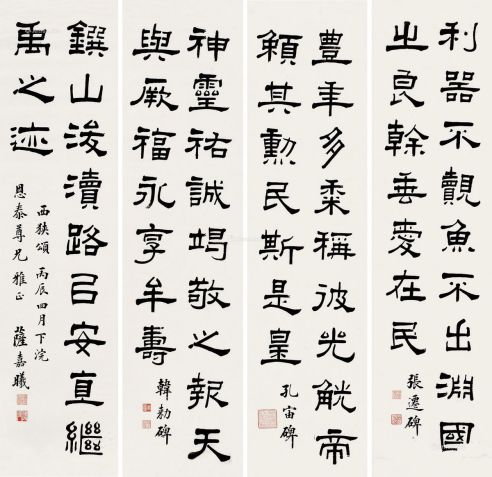 利器不覿魚不出淵國
之良幹垂愛在民
張遷碑
豊年多黍稱彼兕觥帝
賴其勳民斯是皇
孔宙碑
神靈祐誠竭敬之報天
與厥福永享牟壽
韓勑碑
鐫山浚瀆路以安直繼
禹之迹
西狹頌 丙辰四月下浣
恩泰尊兄雅正 薩嘉曦